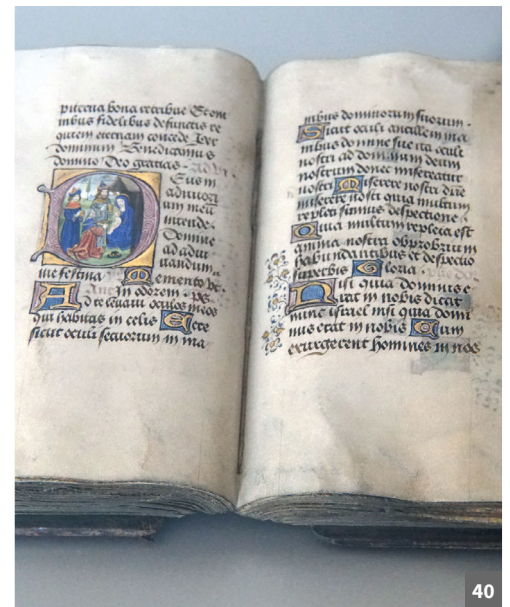 piterna bona retribue Et om
nibus fidelibus defunctis re
quiem eternam concede Per
dominum Benedicamus
domino Deo gratias - Ad VI
Deus in
adiutori
um meū
intende.
Domine
ad adiu
uandum
me festina Memento &c.
Ant In odorem · ps
Ad te leuaui oculos meos
qui habitas in celis Ecce
sicut oculi seruorum in ma
nibus dominorum suorum ·
Sicut oculi ancille in ma
nibus domine sue ita oculi
nostri ad dominum deum
nostrum donec misereatur
nostri Miserere nostri dñe
miserere nostri quia multum
repleti sumus despectione ·
Quia multum repleta est
anima nostra obprobrium
habundantibus et despectio
superbis Gloria
Nisi quia dominus e
rat in nobis dicat
nunc israel nisi quia domi
nus erat in nobis Cum
exurgerent homines in nos
40